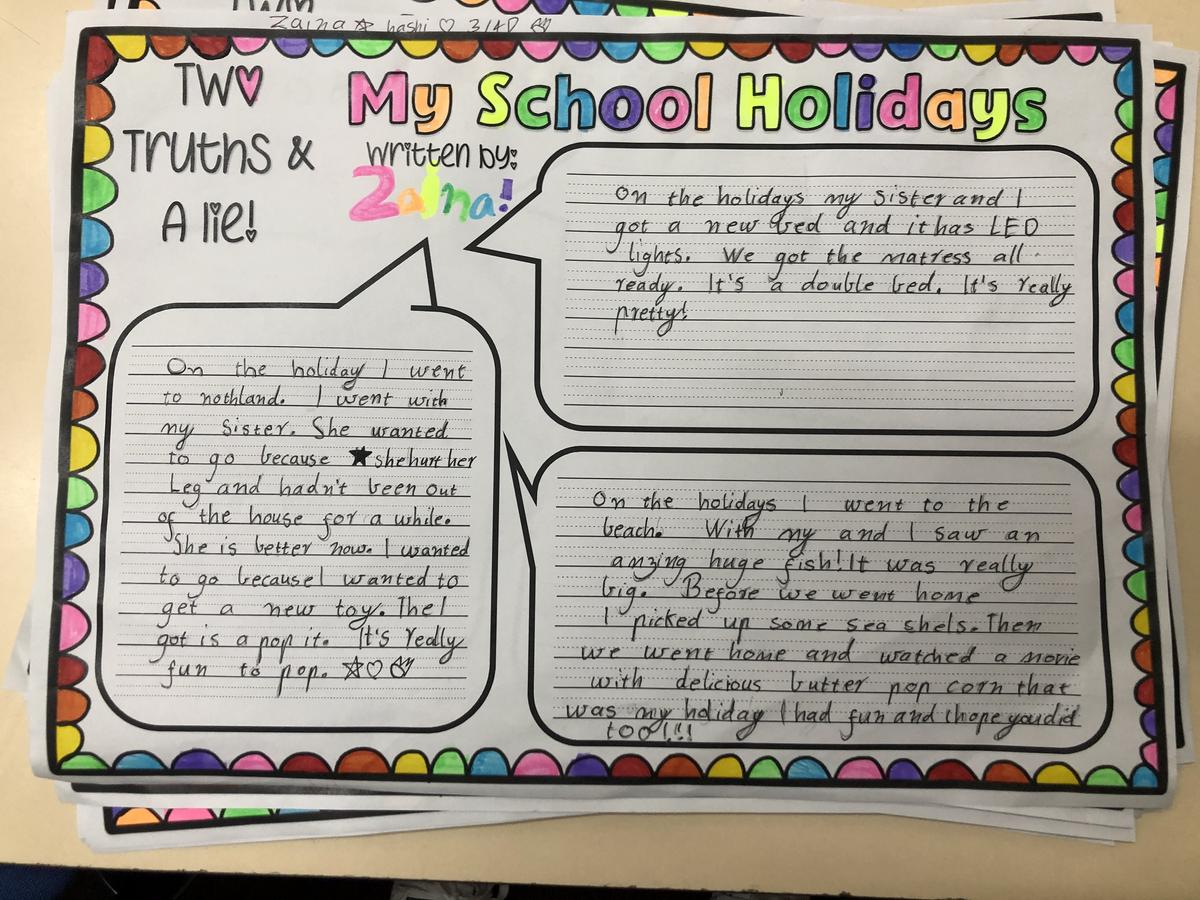 Zaina hashi 3/4P
TWO
Truths &
A lie!
My School Holidays
written by:
Zaina!
On the holidays my sister and I
got a new bed and it has LED
lights. We got the matress all
ready. It's a double bed. It's really
pretty!
On the holiday I went
to nothland. I went with
my sister. She wanted
to go because ★ she hurt her
Leg and hadn't been out
of the house for a while.
She is better now. I wanted
to go because I wanted to
get a new toy. The I
got is a pop it. It's really
fun to pop. ☆♡
On the holidays I went to the
beach. With my and I saw an
amzing huge fish! It was really
big. Before we went home
I picked up some sea shels. Then
we went home and watched a movie
with delicious butter pop corn that
was my holiday I had fun and I hope you did
too!!!